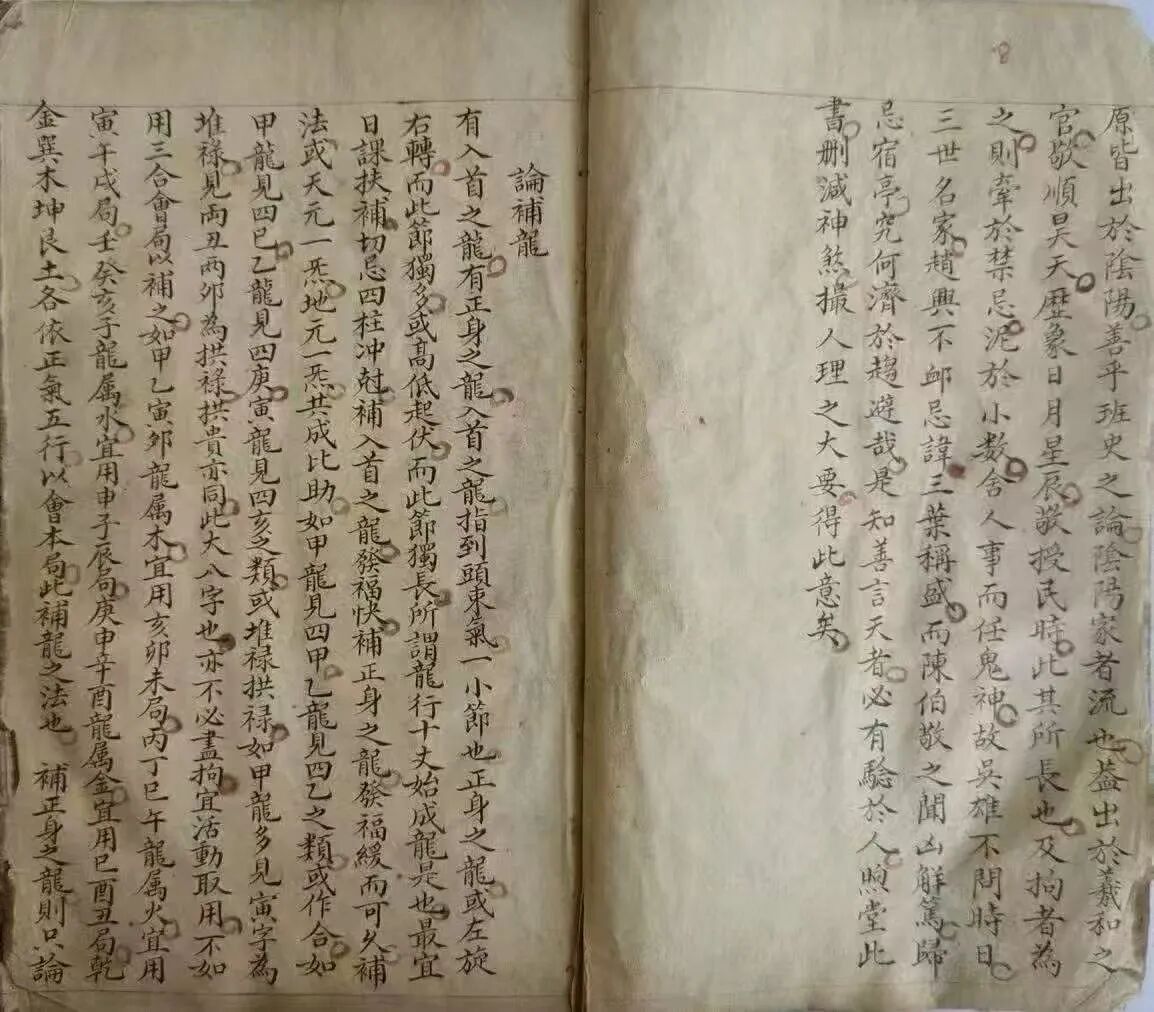 8
原皆出於陰陽善乎班史之論陰陽家者流也葢出於羲和之
官敬順昊天歷象日月星辰敬授民時此其所長也及拘者為
之則牽於禁忌泥於小數舍人事而任鬼神故吳雄不問時日
三世名家趙興不卹忌諱三葉稱盛而陳伯敬之聞凶解駕歸
忌宿亭究何濟於趨避哉是知善言天者必有驗於人煦堂此
書刪減神煞撮人理之大要得此意矣
論補龍
有入首之龍有正身之龍入首之龍指到頭束氣一小節也正身之龍或左旋
右轉而此節獨多或高低起伏而此節獨長所謂龍行十丈始成龍是也最宜
日課扶補切忌四柱冲尅補入首之龍發福快補正身之龍發福緩而可久補
法或天元一炁地元一炁共成比助如甲龍見四甲乙龍見四乙之類或作合如
甲龍見四巳乙龍見四庚寅龍見四亥之類或堆禄拱禄如甲龍多見寅字為
堆禄見両丑两卯為拱禄拱貴亦同此大八字也亦不必盡拘宜活動取用不如
用三合會局以補之如甲乙寅卯龍属木宜用亥卯未局丙丁巳午龍属火宜用
寅午戌局壬癸亥子龍属水宜用申子辰局庚申辛酉龍属金宜用巳酉丑局乾
金巽木坤艮土各依正氣五行以會本局此補龍之法也　補正身之龍則只論